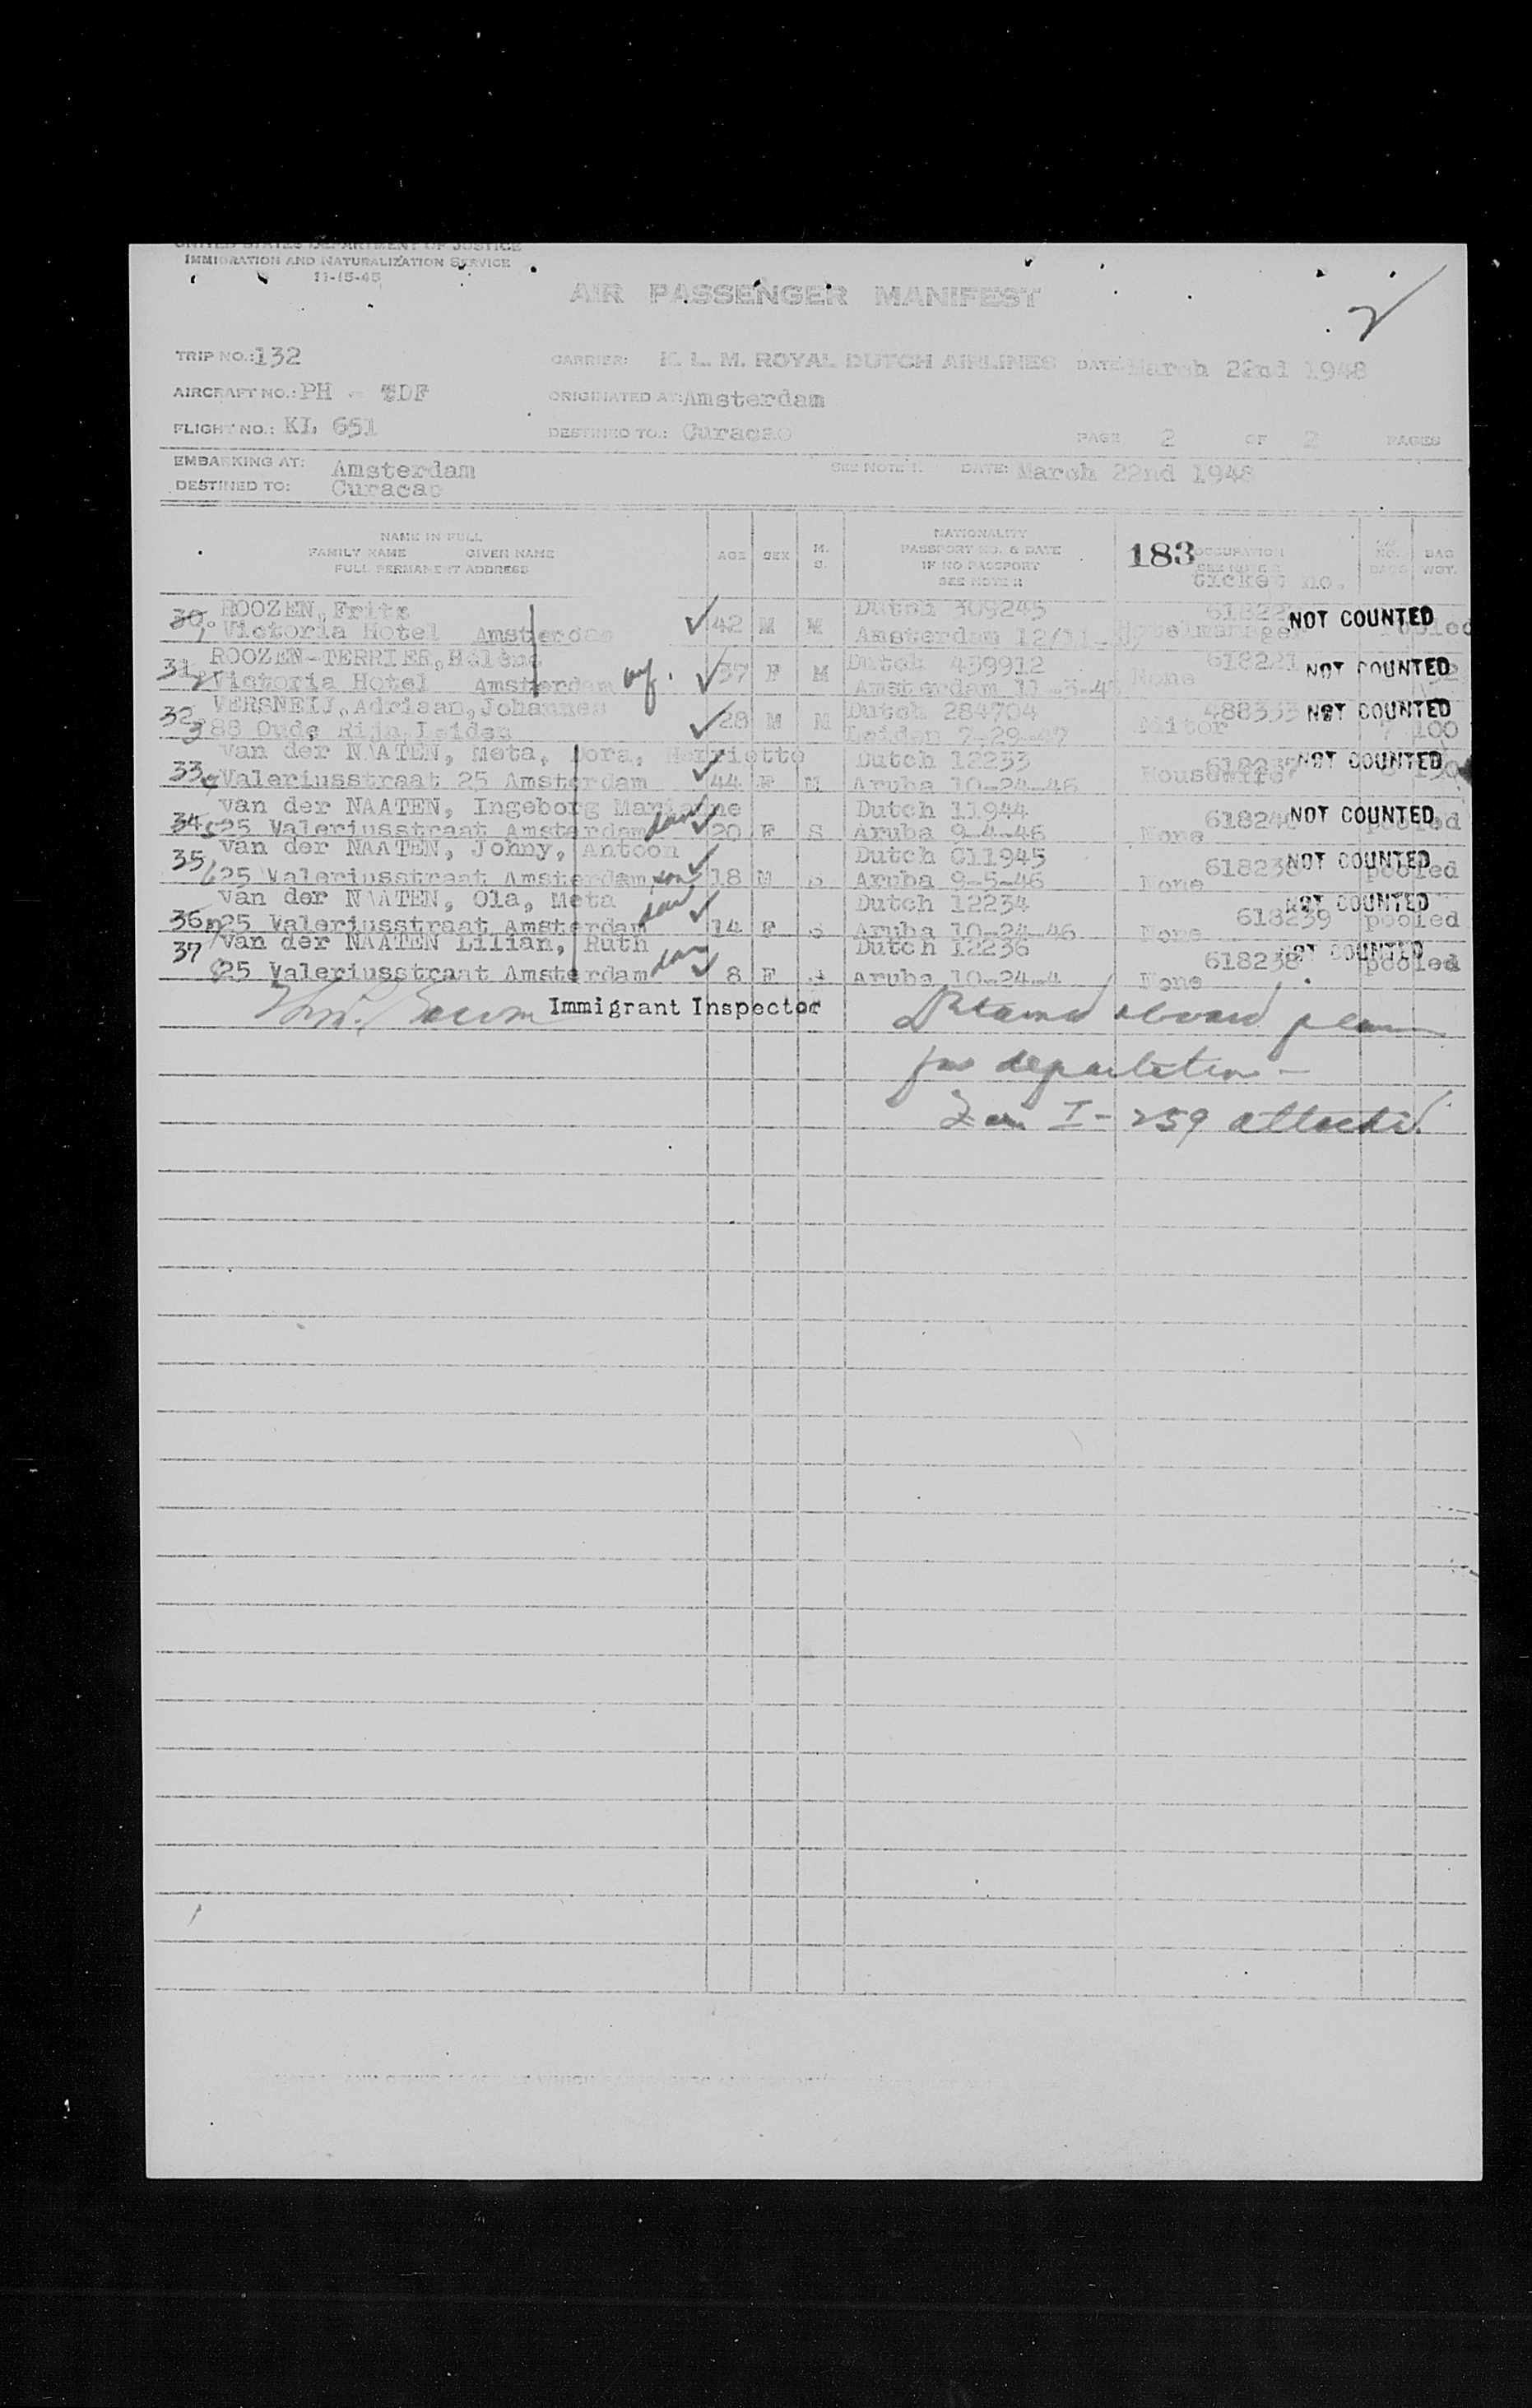 UNITED STATES DEPARTMENT OF JUSTICE
IMMIGRATION AND NATURALIZATION SERVICE
11-15-45
AIR PASSENGER MANIFEST
2
TRIP NO.: 132 CARRIER: K. L. M. ROYAL DUTCH AIRLINES DATE: March 22nd 1948
AIRCRAFT NO.: PH - TDF ORIGINATED AT: Amsterdam
FLIGHT NO.: KL 651 DESTINED TO: Curacao PAGE 2 OF 2 PAGES
EMBARKING AT: Amsterdam SEE NOTE 1. DATE: March 22nd 1948
DESTINED TO: Curacao
NAME IN FULL
FAMILY NAME GIVEN NAME
FULL PERMANENT ADDRESS
AGE SEX M. S.
NATIONALITY
PASSPORT NO. & DATE
IF NO PASSPORT
SEE NOTE II
183 OCCUPATION
ticket no.
NO. BAGS
BAG WGT.
30 ROOZEN, Frits Dutch 309245 NOT COUNTED
Victoria Hotel Amsterdam 42 M M Amsterdam Hotelmanager pooled
31 ROOZEN-TERRIER, Hélène Dutch 439912 618221 NOT COUNTED
Victoria Hotel Amsterdam wf. 37 F M Amsterdam None
32 VERSNEIJ, Adriaan, Johannes Dutch 284704 488333 NOT COUNTED
3 88 Oude Rijn Leiden 28 M M Leiden 7-29-47 100
33 van der NAATEN, Meta, Dora, Henriette Dutch 12233 NOT COUNTED
Valeriusstraat 25 Amsterdam 44 F M Aruba 10-24-46 Housewife
34 van der NAATEN, Ingeborg Marianne Dutch 11944 NOT COUNTED
5 25 Valeriusstraat Amsterdam dau 20 F S Aruba 9-4-46 None pooled
35 van der NAATEN, Johny, Antoon Dutch 011945 NOT COUNTED
6 25 Valeriusstraat Amsterdam son 18 M S Aruba 9-5-46 None pooled
36 van der NAATEN, Ola, Meta Dutch 12234 NOT COUNTED
7 25 Valeriusstraat Amsterdam dau 14 F S Aruba 10-24-46 None 618239 pooled
37 van der NAATEN Lilian, Ruth Dutch 12236 NOT COUNTED
25 Valeriusstraat Amsterdam dau 8 F S Aruba 10-24-4 None 618238 pooled
Immigrant Inspector
Detained aboard plane
for deportation -
Form I-259 attached.